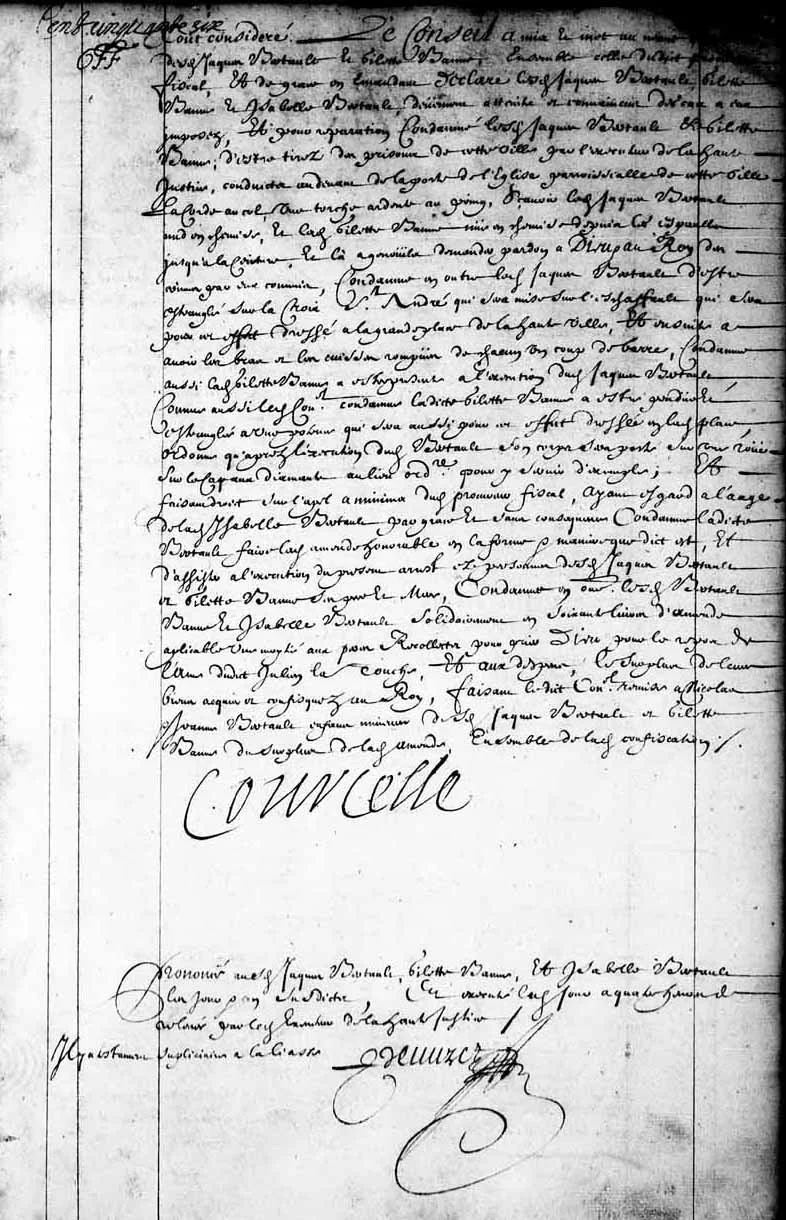 Cent cinquante six
Tout consideré. Le Conseil a mis et met au neant
desd Jaques Bertault et Gilette Banne, Ensemble celle dudict
fiscal, Et de grace en Emandant declare lesd Jaques Bertault Gilette
Banne et Isabelle Bertault, deüement atteints et convaincus des cas a eux
imposez, Et pour reparation Condamné lesd Jaques Bertault et Gilette
Banne, d'estre tirez des prisons de cette Ville par l'executeur de la haute
Justice, conduicts au devant de la porte de l'Eglise parroissialle de cette Ville
La Corde au col, Une torche ardente au poing, Scavoir led Jaques Bertault
nud en chemise, Et lad Gilette Banne en chemise depuis les espaulles
jusqu'a la Ceinture, Et là a genoüils demander pardon a Dieu, au Roy des
crimes par eux commis, Condamne en outre led Jaques Bertault d'estre
estranglé sur la Croix St André qui sera mise sur l'eschaffault qui sera
pour cet effect dressé a la grande place de la haute Ville, Et ensuite a
avoir les bras et les cuisses rompües de chacun un coup de barre, Condamne
aussi lad Gilette Banne a estre presente a l'execution dud Jaques Bertault
Comme aussi led Conl condamne ladicte Gilette Banne a estre pendüe Et
estranglée a une potence qui sera aussi pour cet effect dressée en lad place,
ordonne qu'aprez l'execution dud Bertault son corps sera porté sur une roüe
sur le Cap aux diamants au lieu ordre pour y servir d'exemple; Et
faisant droit sur l'apel a minima dud procureur fiscal, ayant esgard a l'aage
de lad Isabelle Bertault, par grace Et sans consequence Condamne ladicte
Bertault faire lad amende honorable en la forme maniere que dict est, Et
d'assister a l'execution du present arrest ez personnes desd Jaques Bertault
et Gilette Banne ses pere Et Mere, Condamne en oure lesd Bertault
Banne Et Isabelle Bertault solidairement en soixante livres d'amende
aplicable Une moytié aux peres Recollects pour prier Dieu pour le repos de
l'ame dudict Julien la Touche, Et aux despens, le surplus de leurs
biens acquis et confisquez au Roy, faisant ledict Conl remise a Nicolas
Jeanne Bertault enfans mineurs desd Jaques Bertault et Gilette
Banne du surplus de lad Amende, Ensemble de lad confiscation /.
Courcelle
Prononcé ausd Jaques Bertault, Gilette Banne, Et Isabelle Bertault
les jour an susdicts, Et executé led jour a quatre heures de
relevée par led Executeur de la haute Justice /
Il y a testament supliciaire a la liasse